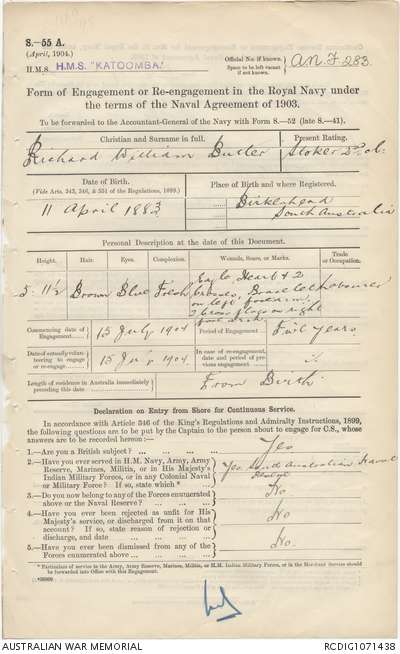 S.—55 A.
(April, 1904.)
H.M.S. H.M.S. "KATOOMBA."
Official No. if known.
Space to be left vacant
if not known.
A.N.F 283
Form of Engagement or Re-engagement in the Royal Navy under
the terms of the Naval Agreement of 1903.
To be forwarded to the Accountant-General of the Navy with Form S.—52 (late S.—41).
Christian and Surname in full.
Present Rating.
Richard William Butler
Stoker 2nd cl.
Date of Birth.
(Vide Arts. 343, 346, & 351 of the Regulations, 1899.)
Place of Birth and where Registered.
11 April 1883
Birkenhead
South Australia
Personal Description at the date of this Document.
Height.
Hair.
Eyes.
Complexion.
Wounds, Scars, or Marks.
Trade
or Occupation.
5. 11½
Brown
Blue
Fresh
Eagle Heart & 2
on left forearm
2 flags on right
Labourer
Commencing date of
Engagement
15 July 1904
Period of Engagement
Five years
Date of actually volunteering to engage
or re-engage
15 July 1904
In case of re-engagement,
date and period of previous engagement
Length of residence in Australia immediately
preceding this date
From Birth
Declaration on Entry from Shore for Continuous Service.
In accordance with Article 346 of the King's Regulations and Admiralty Instructions, 1899,
the following questions are to be put by the Captain to the person about to engage for C.S., whose
answers are to be recorded hereon :—
1.—Are you a British subject? ... ... ... ...
Yes
2.—Have you ever served in H.M. Navy, Army, Army
Reserve, Marines, Militia, or in His Majesty's
Indian Military Forces, or in any Colonial Naval
or Military Force? If so, state which *
Yes South Australian Naval
3.—Do you now belong to any of the Forces enumerated
above or the Naval Reserve? ...
No
4.—Have you ever been rejected as unfit for His
Majesty's service, or discharged from it on that
account? If so, state reason of rejection or
discharge, and date
No
5.—Have you ever been dismissed from any of the
Forces enumerated above
No
* Particulars of service in the Army, Army Reserve, Marines, Militia, or in H.M. Indian Military Forces, or in the Merchant Service should
be forwarded into Office with this Engagement.
AUSTRALIAN WAR MEMORIAL
RCDIG1071438